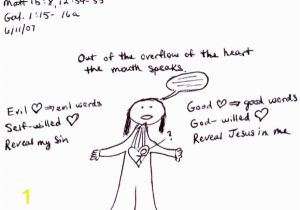 Matt 15:8, 12:34-35
Gal. 1:15-16a
6/11/07
Out of the overflow of the heart
the mouth speaks.
Evil ♡ ⇒ evil words
Self-willed ♡
Reveal my Sin
Good ♡ ⇒ good words
God-willed ♡
Reveal Jesus in me
?
1